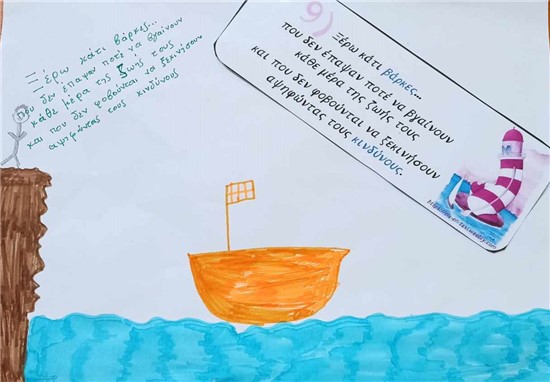 Ξέρω κάτι βάρκες...
που δεν έπαψαν ποτέ να βγαίνουν
κάθε μέρα της ζωής τους
και που δεν φοβούνται να ξεκινήσουν
αψηφώντας τους κινδύνους
9)
Ξέρω κάτι βάρκες...
που δεν έπαψαν ποτέ να βγαίνουν
κάθε μέρα της ζωής τους
και που δεν φοβούνται να ξεκινήσουν
αψηφώντας τους κινδύνους.